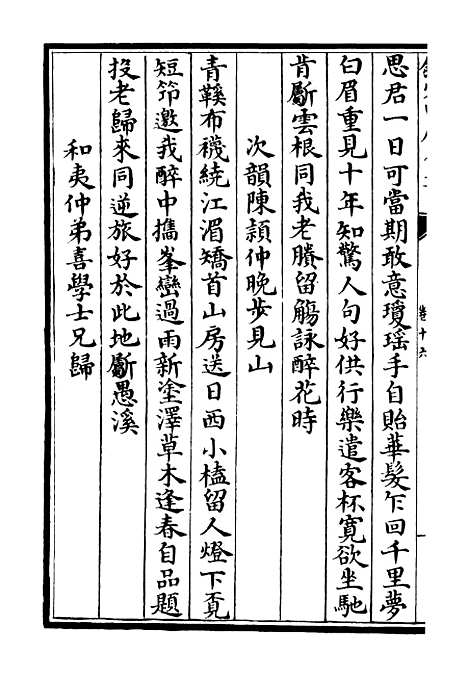 卷十六
思君一日可當期敢意瓊瑤手自貽華髮乍回千里夢
白眉重見十年知驚人句好供行樂遣客杯寬欲坐馳
肯斸雲根同我老賸留觴詠醉花時
次韻陳頴仲晚步見山
青鞵布襪繞江湄矯首山房送日西小榼留人燈下覔
短笻邀我醉中攜峯巒過雨新塗澤草木逢春自品題
投老歸來同逆旅好於此地斸愚溪
和夷仲弟喜學士兄歸